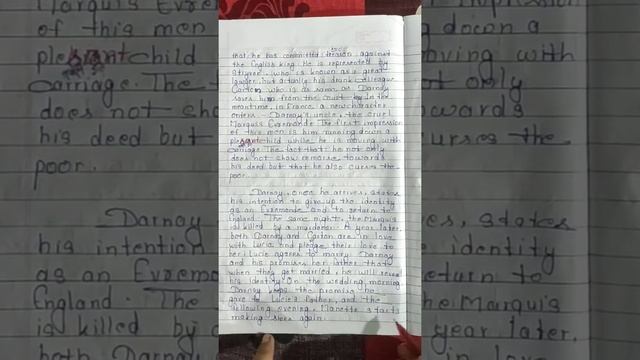 that he has committed treason against
the English king. He is represented by
Stryver, who is known as a great
lawyer, but actually his drunk colleague
Carton, who is as same as Darnay
saves him from the court. In the
meantime, in France a new character
enters - Darnay's uncle, the cruel
Marquis Evremonde. The first impression
of this men is him running down a
child while he is moving with
carriage. The fact that he not only
does not show remorse towards
his deed but that he also curses the
poor.
Darnay, once he arrives, states
his intention to give up the identity
as an Evremonde and to return to
England. The same night, the Marquis
is killed by a murderer. A year later,
both Darnay and Carton are in love
with Lucie and pledge their love to
her. Lucie agrees to marry Darnay
and his promises her father that
when they get married, he will reveal
his identity. On the wedding morning,
Darnay keeps the promise he
gave to Lucie's father, and the
following evening, Manette starts
making shoes again.